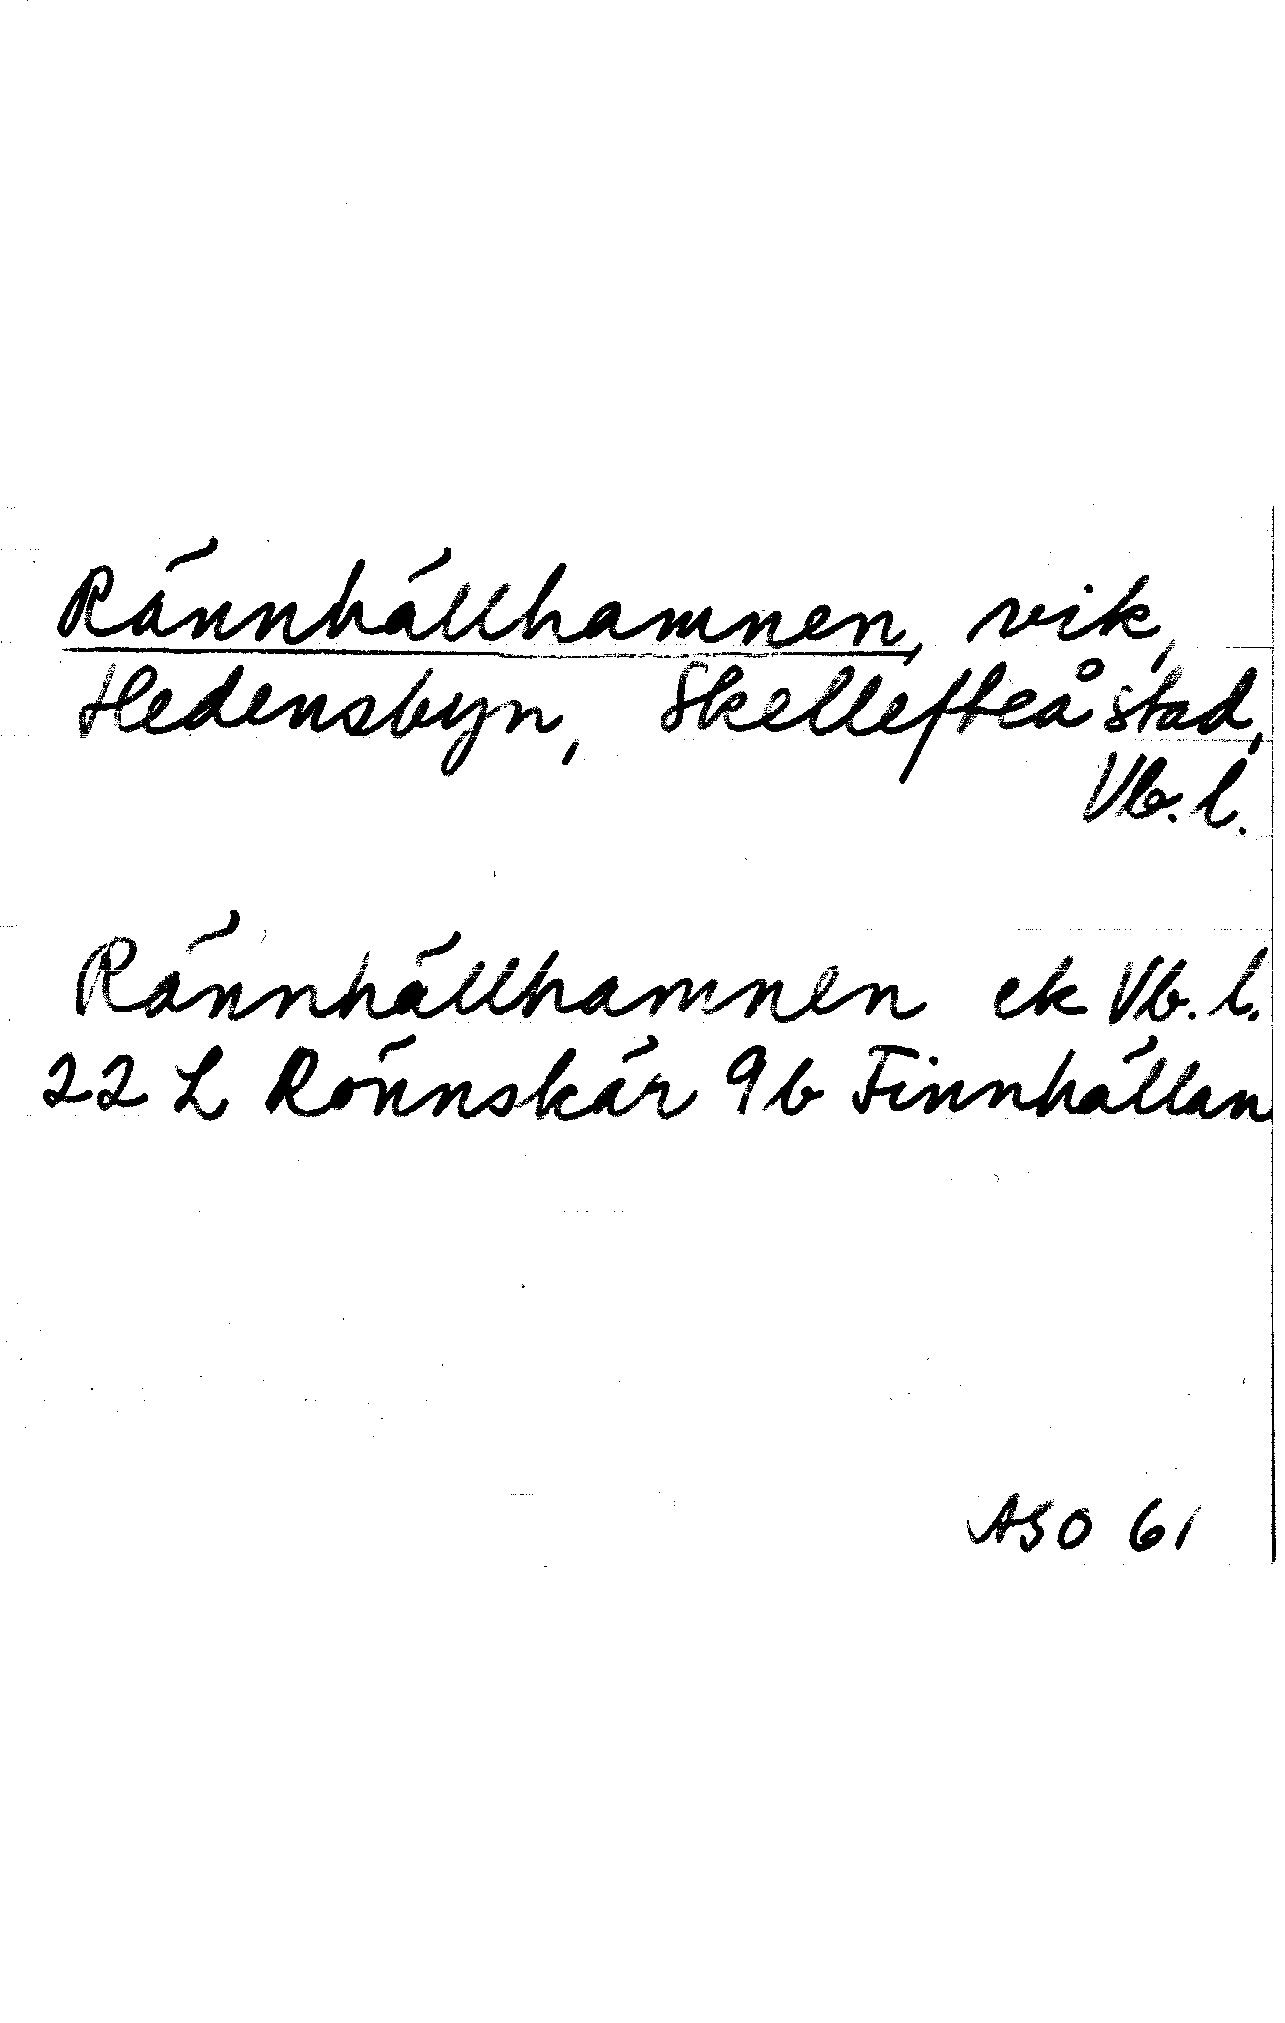 Rännhällhamnen, vik,
Hedensbyn, Skellefteå stad,
Vb. l.
Rännhällhamnen ek Vb. l.
22 L Rönnskär 9b Finnhällan
ASO 61